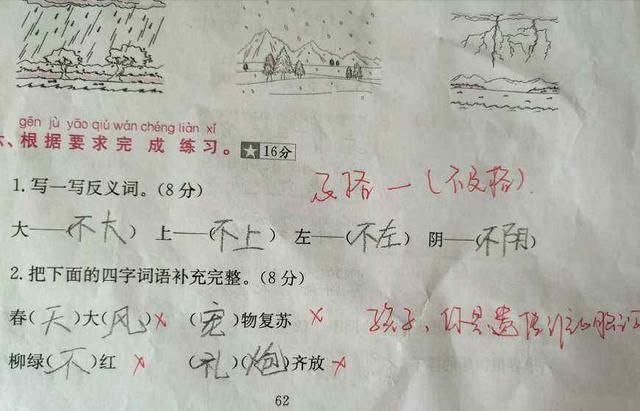 gēn jù yāo qiú wán chéng liàn xí
六、根据要求完成练习。★16分
1.写一写反义词。(8分)
及格一(不及格)
大——(不大) 上——(不上) 左——(不左) 阴——(不阴)
2.把下面的四字词语补充完整。(8分)
春(天)大(风)× (宠)物复苏 × 孩子、你是遗传谁的
柳绿(不)红 × (礼)(炮)齐放 ×
62